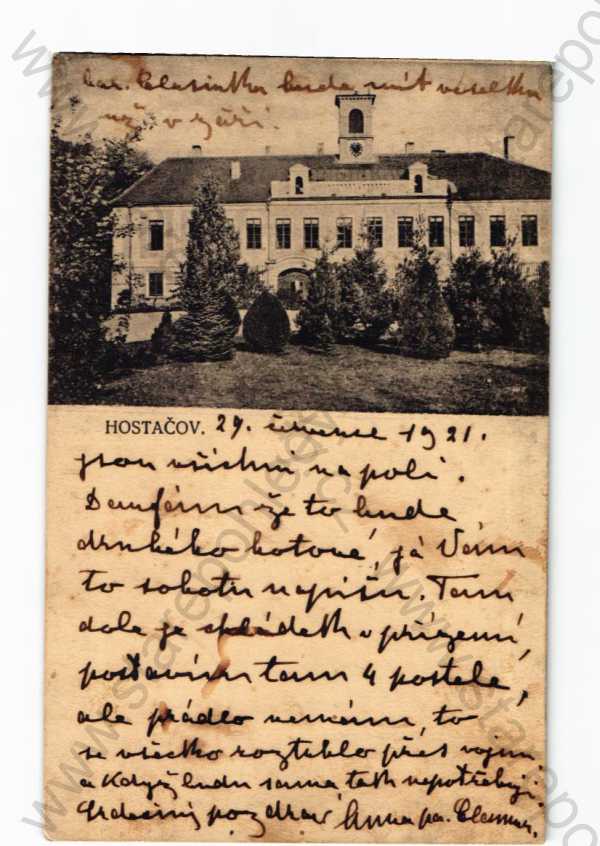 bude mít veselku
už v září.
HOSTAČOV. 29. července 1921.
jsou všichni na poli.
Doufám že to bude
druhého hotové, já Vám
to sobotu napíšu. Tam
dole je v přízemí,
postavím tam 4 postele,
ale prádlo nemám, to
se všecko roztrhlo přes vojnu
a když budu sama tak nepotřebuji.
Srdečný pozdrav Anna
www.starepohledy.cz